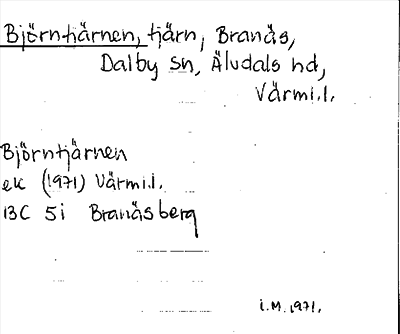 Björntjärnen, tjärn, Branäs,
Dalby sn, Äludals hd,
Värml.l.
Björntjärnen
ek (1971) Värml.l.
13C 5i Branäsberg
i.M. 1971.